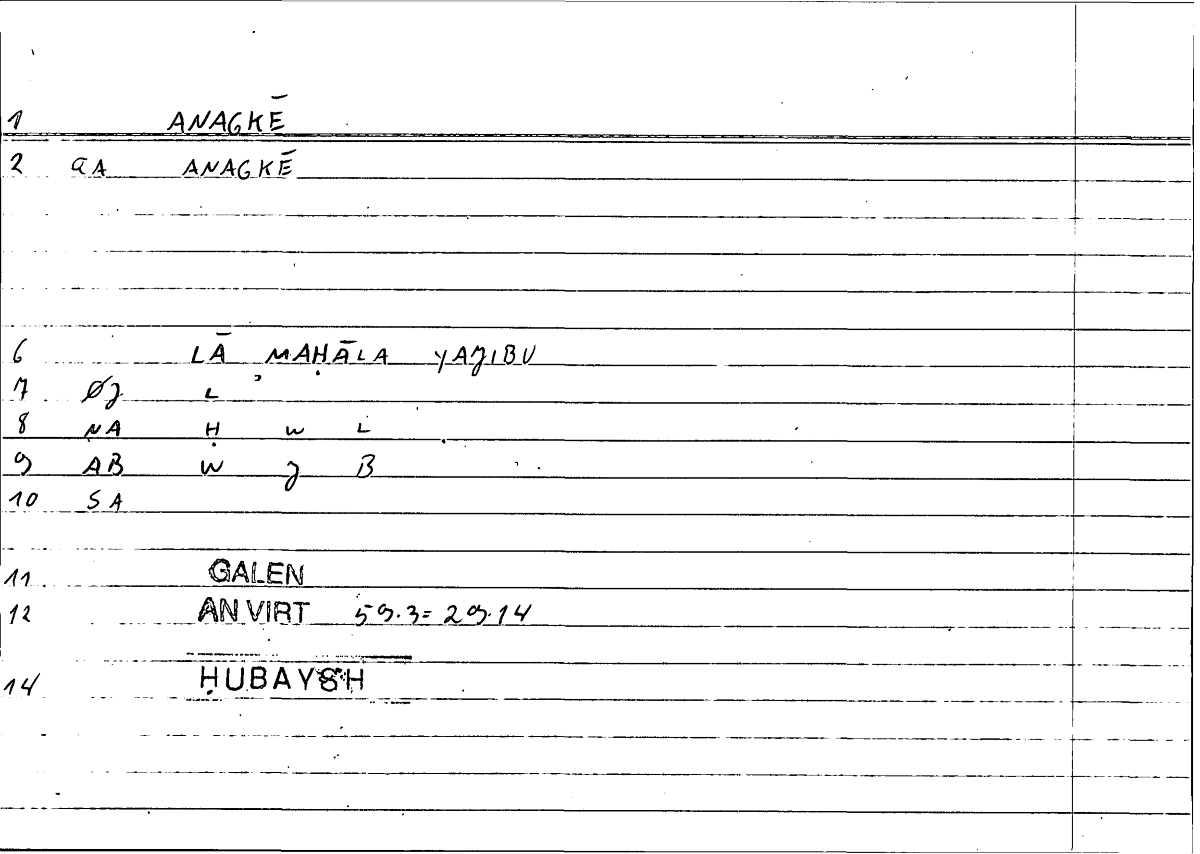 1 ANAGKĒ
2 aA ANAGKĒ
6 LĀ MAḤĀLA YAJIBU
7 ØJ L
8 NA Ḥ W L
9 AB W J B
10 SA
11 GALEN
12 AN VIRT 59.3=29.14
14 ḤUBAYSH